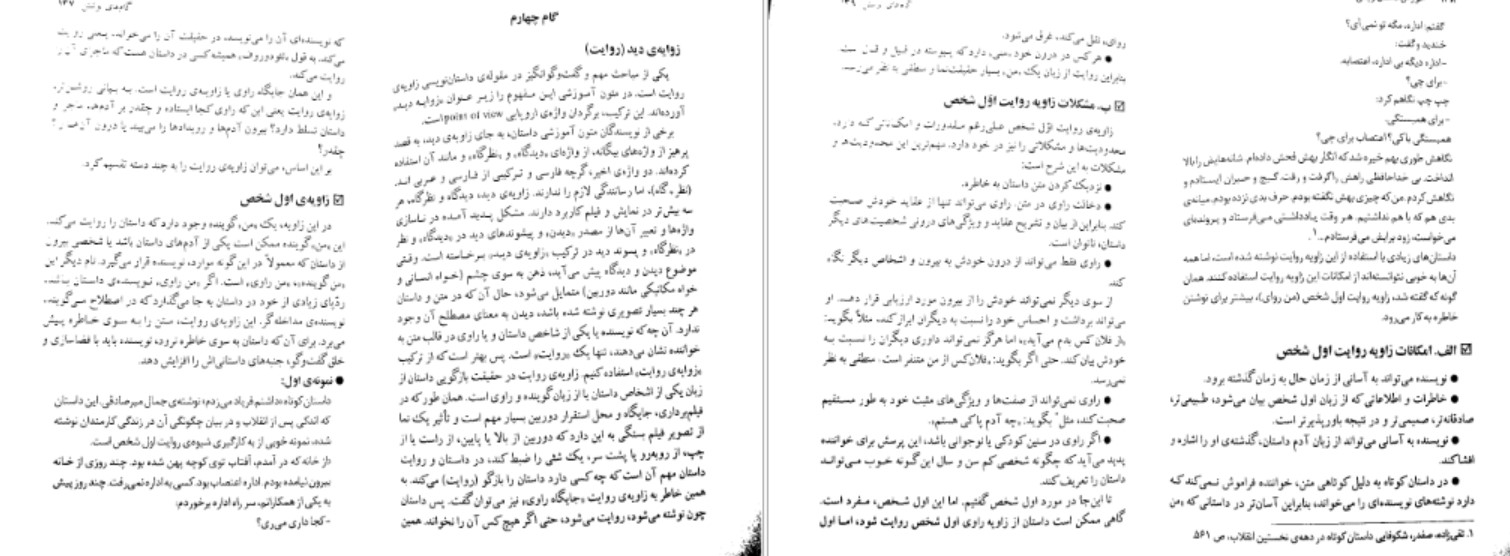 گام چهارم
زوایه‌ی دید (روایت)
یکی از مباحث مهم و گفت‌وگوانگیز در مقوله‌ی داستان‌نویسی زاویه‌ی
روایت است. در متون آموزشی این مفهوم را زیر عنوان «زوایه دید»
آورده‌اند. این ترکیب، برگردان واژه‌ی اروپایی point of view است.
برخی از نویسندگان متون آموزشی داستان، به جای زاویه‌ی دید، به قصد
پرهیز از واژه‌های بیگانه، از واژه‌ای «دیدگاه» و «نظرگاه» و مانند آن استفاده
کرده‌اند. دو واژه‌ی اخیر، گرچه فارسی و ترکیبی از فارسی و عربی‌اند
(نظر، گاه)، اما رسانندگی لازم را ندارند. زاویه‌ی دید، دیدگاه و نظرگاه، هر
سه بیش‌تر در نمایش و فیلم کاربرد دارند. مشکل پدید آمده در نماسازی
واژه‌ها و تعبیر آن‌ها از مصدر «دیدن» و پیشوندهای دید در «دیدگاه» و نظر
در «نظرگاه» و پسوند دید در ترکیب «زاویه‌ی دید» برخاسته است. وقتی
موضوع دیدن و دیدگاه پیش می‌آید، ذهن به سوی چشم (خواه انسانی و
خواه مکانیکی مانند دوربین) متمایل می‌شود، حال آن‌که در متن و داستان
هر چند بسیار تصویری نوشته شده باشد، دیدن به معنای مصطلح آن وجود
ندارد. آن چه‌که نویسنده یا یکی از شاخص داستان و یا راوی در قالب متن به
خواننده نشان می‌دهند، تنها یک «روایت» است. پس بهتر است‌که از ترکیب
«زوایه‌ی روایت» استفاده کنیم. زاویه‌ی روایت در حقیقت بازگویی داستان از
زبان یکی از اشخاص داستان یا از زبان گوینده و راوی است. همان طور که در
فیلم‌برداری، جایگاه و محل استقرار دوربین بسیار مهم است و تأثیر یک نما
از تصویر فیلم بستگی به این دارد که دوربین از بالا یا پایین، از راست یا از
چپ، از روبه‌رو یا پشت سر، یک شئی را ضبط کند، در داستان و روایت
داستان مهم آن است‌که چه‌کسی دارد داستان را بازگو (روایت) می‌کند. به
همین خاطر به زاویه‌ی روایت «جایگاه راوی» نیز می‌توان‌گفت. پس داستان
چون نوشته می‌شود، روایت می‌شود، حتی اگر هیچ کس آن را نخواند. همین
گام‌های نوشتن ۱۴۷
که نویسنده‌ای آن را می‌نویسد، در حقیقت آن را می‌خواند، یعنی روایت
می‌کند. به قول «تودوروف» همیشه‌کسی در داستان هست‌که ماجرای آن را
روایت می‌کند.
و این همان جایگاه راوی یا زاویه‌ی روایت است. به بیانی روشن‌تر،
زوایه‌ی روایت یعنی این که راوی کجا ایستاده و چقدر بر آدم‌ها، ماجرا و
داستان تسلط دارد؟ بیرون آدم‌ها و رویدادها را می‌بیند یا درون آن‌ها را؟
چقدر؟
بر این اساس، می‌توان زاویه‌ی روایت را به چند دسته تقسیم کرد.
☑ زاویه‌ی اول شخص
در این زاویه، یک «من» گوینده وجود دارد که داستان را روایت می‌کند.
این «من» گوینده ممکن است یکی از آدم‌های داستان باشد یا شخصی بیرون
از داستان‌که معمولاً در این‌گونه موارد، نویسنده قرار می‌گیرد. نام دیگر این
«من گوینده»، «من راوی» است. اگر «من راوی» نویسنده‌ی داستان باشد،
ردّپای زیادی از خود در داستان به جا می‌گذارد که در اصطلاح می‌گویند
نویسنده‌ی مداخله‌گر. این زاویه‌ی روایت، متن را به سوی خاطره پیش
می‌برد. برای آن‌که داستان به سوی خاطره نرود، نویسنده باید با فضاسازی و
خلق گفت‌وگو، جنبه‌های داستانی‌اش را افزایش دهد.
● نمونه‌ی اول:
داستان کوتاه «داشتم فریاد می‌زدم» نوشته‌ی جمال میرصادقی. این داستان
که اندکی پس از انقلاب و در بیان چگونگی آن در زندگی کارمندان نوشته
شده، نمونه خوبی از به کارگیری شیوه‌ی روایت اول شخص است.
«از خانه که در آمدم، آفتاب توی کوچه پهن شده بود. چند روزی از خانه
بیرون نیامده بودم. اداره اعتصاب بود. کسی به اداره نمی‌رفت. چند روز پیش
به یکی از همکارانم، سر راه اداره برخوردم:
- کجا داری می‌ری؟
گفتم: اداره، مگه تو نمی‌آی؟
خندید و گفت:
- اداره دیگه بی اداره، اعتصابه.
- برای چی؟
چپ چپ نگاهم کرد:
- برای همبستگی.
همبستگی با کی؟ اعتصاب برای چی؟
نگاهش طوری بهم خیره شد که انگار بهش فحش داده‌ام. شانه‌هایش را بالا
انداخت. بی خداحافظی راهش را گرفت و رفت. گیج و حیران ایستادم و
نگاهش کردم. من که چیزی بهش نگفته بودم. حرف بدی نزده بودم. میانه‌ی
بدی هم که با هم نداشتیم. هر وقت یادداشتی می‌فرستاد و پرونده‌ای
می‌خواست، زود برایش می‌فرستادم...»¹.
داستان‌های زیادی با استفاده از این زاویه روایت نوشته شده است، اما همه
آن‌ها به خوبی نتوانسته‌اند از امکانات این زاویه روایت استفاده کنند. همان
گونه که گفته شد، زاویه روایت اول شخص (من روای)، بیشتر برای نوشتن
خاطره به کار می‌رود.
☑ الف. امکانات زاویه روایت اول شخص
● نویسنده می‌تواند به آسانی از زمان حال به زمان گذشته برود.
● خاطرات و اطلاعاتی که از زبان اول شخص بیان می‌شود، طبیعی‌تر،
صادقانه‌تر، صمیمی‌تر و در نتیجه باورپذیرتر است.
● نویسنده به آسانی می‌تواند از زبان آدم داستان، گذشته‌ی او را اشاره و
افشا کند.
● در داستان کوتاه به دلیل کوتاهی متن، خواننده فراموش نمی‌کند که
دارد نوشته‌های نویسنده‌ای را می‌خواند، بنابراین آسان‌تر در داستانی که «من
۱. تقی‌زاده، صفدر، شکوفایی داستان کوتاه در دهه‌ی نخستین انقلاب، ص ۵۶۱
گام‌های نوشتن ۱۴۹
روای» نقل می‌کند، غرق می‌شود.
● هر کس در درون خود «منی» دارد که پیوسته در قبیل و قال است.
بنابراین روایت از زبان یک «من» بسیار حقیقت‌نما و منطقی به نظر می‌رسد.
☑ ب. مشکلات زاویه روایت اوّل شخص
زاویه‌ی روایت اوّل شخص علی‌رغم مقدورات و امکاناتی که دارد،
محدودیت‌ها و مشکلاتی را نیز در خود دارد. مهم‌ترین این محدودیت‌ها و
مشکلات به این شرح است:
● نزدیک کردن متن داستان به خاطره.
● دخالت راوی در متن. راوی می‌تواند تنها از عقاید خودش صحبت
کند. بنابراین از بیان و تشریح عقاید و ویژگی‌های درونی شخصیت‌های دیگر
داستان، ناتوان است.
● راوی فقط می‌تواند از درون خودش به بیرون و اشخاص دیگر نگاه
کند.
از سوی دیگر نمی‌تواند خودش را از بیرون مورد ارزیابی قرار دهد. او
می‌تواند برداشت و احساس خود را نسبت به دیگران ابراز کند. مثلاً بگوید:
«از فلان کس بدم می‌آید» اما هرگز نمی‌تواند داوری دیگران را نسبت به
خودش بیان کند. حتی اگر بگوید: «فلان کس از من متنفر است» منطقی به نظر
نمی‌رسد.
● راوی نمی‌تواند از صفت‌ها و ویژگی‌های مثبت خود به طور مستقیم
صحبت کند، مثلً بگوید: «چه آدم پاکی هستم».
● اگر راوی در سنین کودکی یا نوجوانی باشد، این پرسش برای خواننده
پدید می‌آید که چگونه شخصی کم سن و سال این‌گونه خوب می‌تواند
داستان را تعریف کند.
تا این‌جا در مورد اول شخص گفتیم. اما این اول شخص، مفرد است.
گاهی ممکن است داستان از زاویه راوی اول شخص روایت شود، اما اول